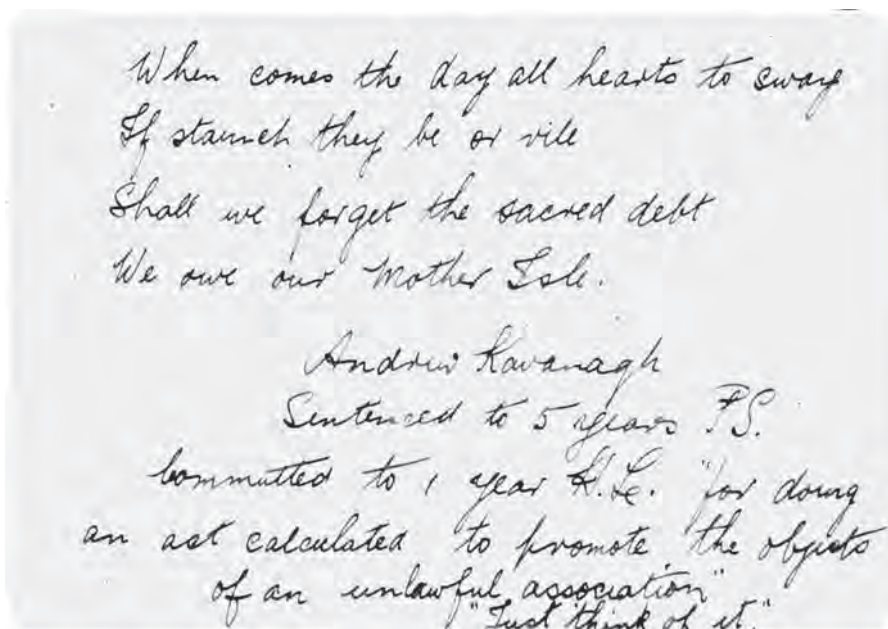 When comes the day all hearts to sway
If staunch they be or vile
Shall we forget the sacred debt
We owe our Mother Isle.
Andrew Kavanagh
Sentenced to 5 years P.S.
Committed to 1 year H.L. "for doing
an act calculated to promote the objects
of an unlawful association"
"Just think of it."